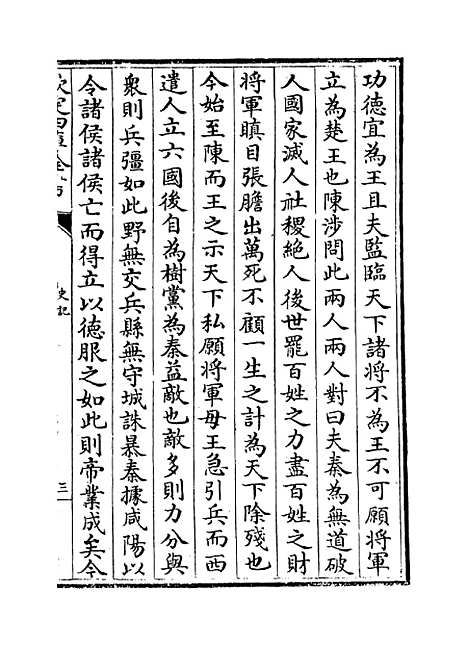 功德宜為王且夫監臨天下諸將不為王不可願將軍
立為楚王也陳涉問此兩人兩人對曰夫秦為無道破
人國家滅人社稷絶人後世罷百姓之力盡百姓之財
將軍瞋目張膽出萬死不顧一生之計為天下除殘也
今始至陳而王之示天下私願將軍毋王急引兵而西
遣人立六國後自為樹黨為秦益敵也敵多則力分與
衆則兵彊如此野無交兵縣無守城誅暴秦據咸陽以
令諸侯諸侯亡而得立以德服之如此則帝業成矣今
欽定四庫全書
史記
三